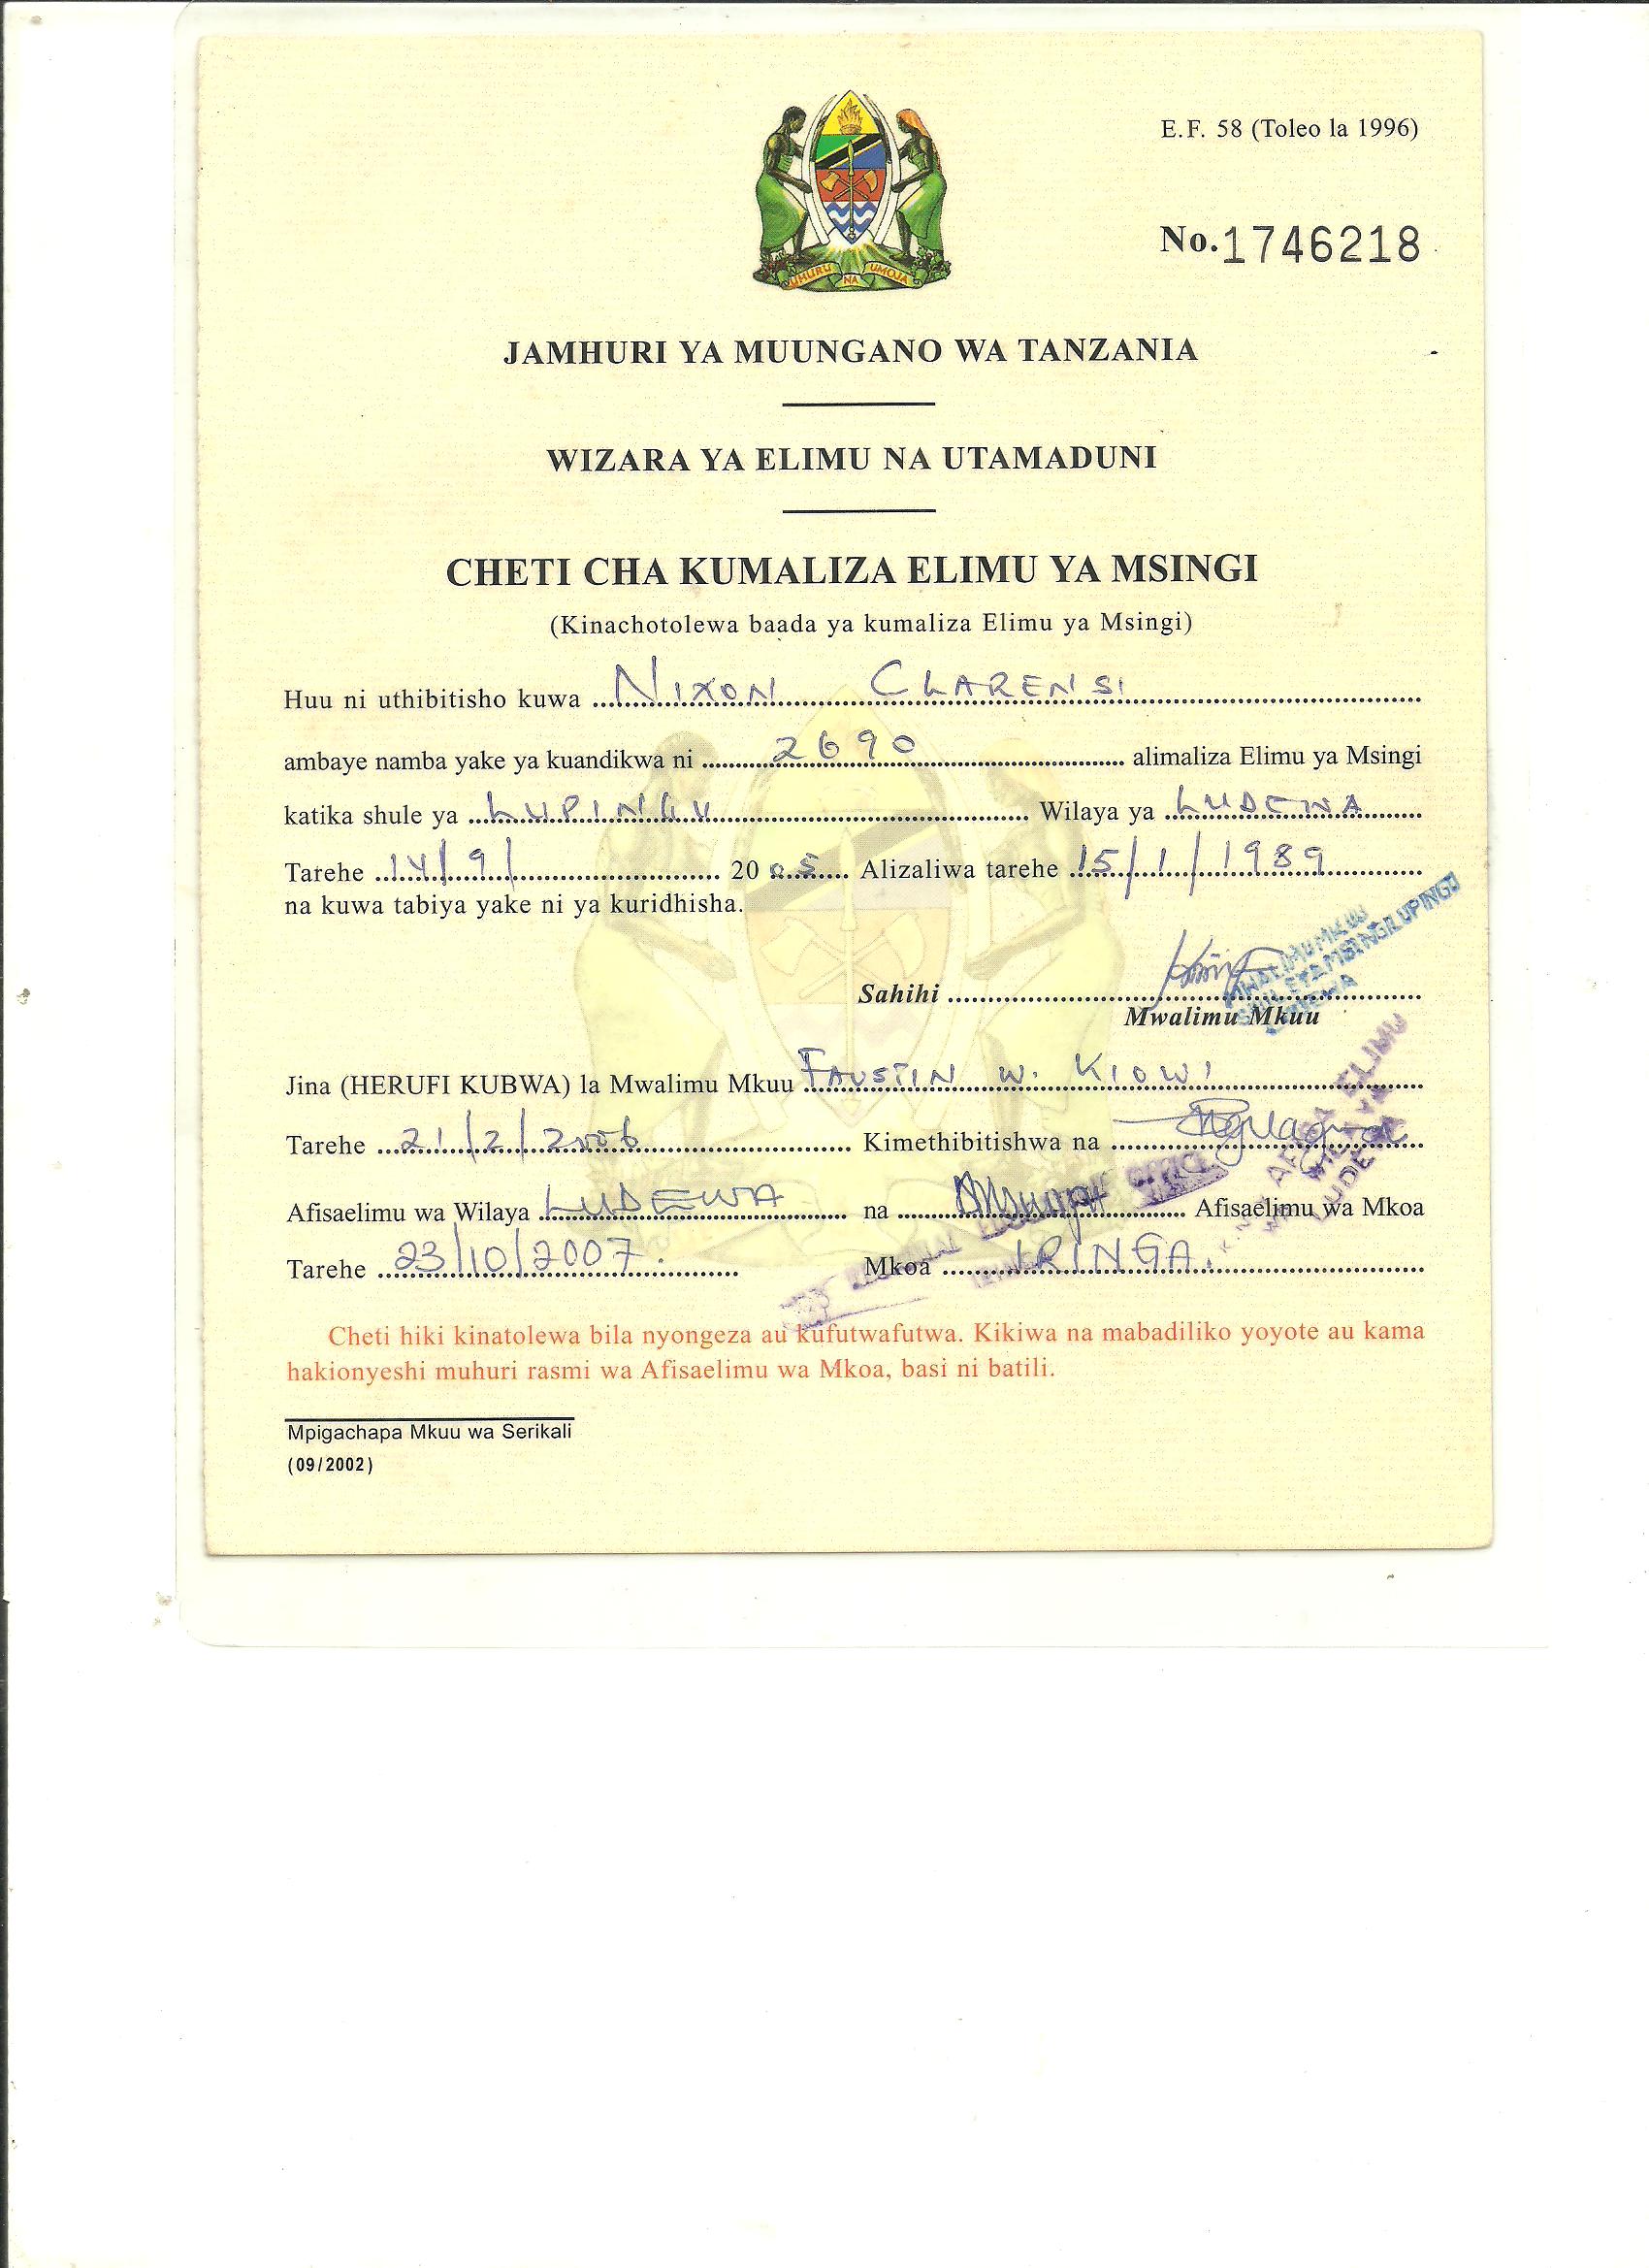 E.F. 58 (Toleo la 1996)
No. 1746218
UHURU NA UMOJA
JAMHURI YA MUUNGANO WA TANZANIA
WIZARA YA ELIMU NA UTAMADUNI
CHETI CHA KUMALIZA ELIMU YA MSINGI
(Kinachotolewa baada ya kumaliza Elimu ya Msingi)
Huu ni uthibitisho kuwa NIXON CLARENSI
ambaye namba yake ya kuandikwa ni 2690 alimaliza Elimu ya Msingi
katika shule ya LUPINGU Wilaya ya LUDEWA
Tarehe 14/9/ 20 05 Alizaliwa tarehe 15/1/1989
na kuwa tabiya yake ni ya kuridhisha.
MWALIMU MKUU
SHULE YA MSINGI LUPINGU
LUDEWA
Sahihi
Mwalimu Mkuu
Jina (HERUFI KUBWA) la Mwalimu Mkuu FAUSTIN W. KIOWI
Tarehe 21/2/2006 Kimethibitishwa na
AFISA ELIMU
WILAYA YA
LUDEWA
Afisaelimu wa Wilaya LUDEWA na Afisaelimu wa Mkoa
Tarehe 23/10/2007. Mkoa IRINGA.
Cheti hiki kinatolewa bila nyongeza au kufutwafutwa. Kikiwa na mabadiliko yoyote au kama
hakionyeshi muhuri rasmi wa Afisaelimu wa Mkoa, basi ni batili.
Mpigachapa Mkuu wa Serikali
(09/2002)